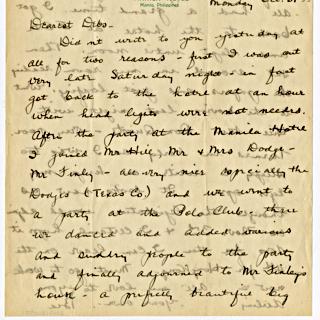 Manila, Philippines
Monday Oct.
Dearest Debs-
Didn't write to you yesterday at
all for two reasons - first I was out
very late Saturday night - in fact
got back to the hotel at an hour
when head lights were not needed.
After the party at the Manila Hotel
I joined Mr Hill, Mr & Mrs Dodge -
Mr Finley - all very nice especially the
Dodges (Texas Co.) and we went to
a party at the Polo Club - there
we danced and added various
and sundry people to the party
and finally adjourned to Mr Finley's
house - a perfectly beautiful big